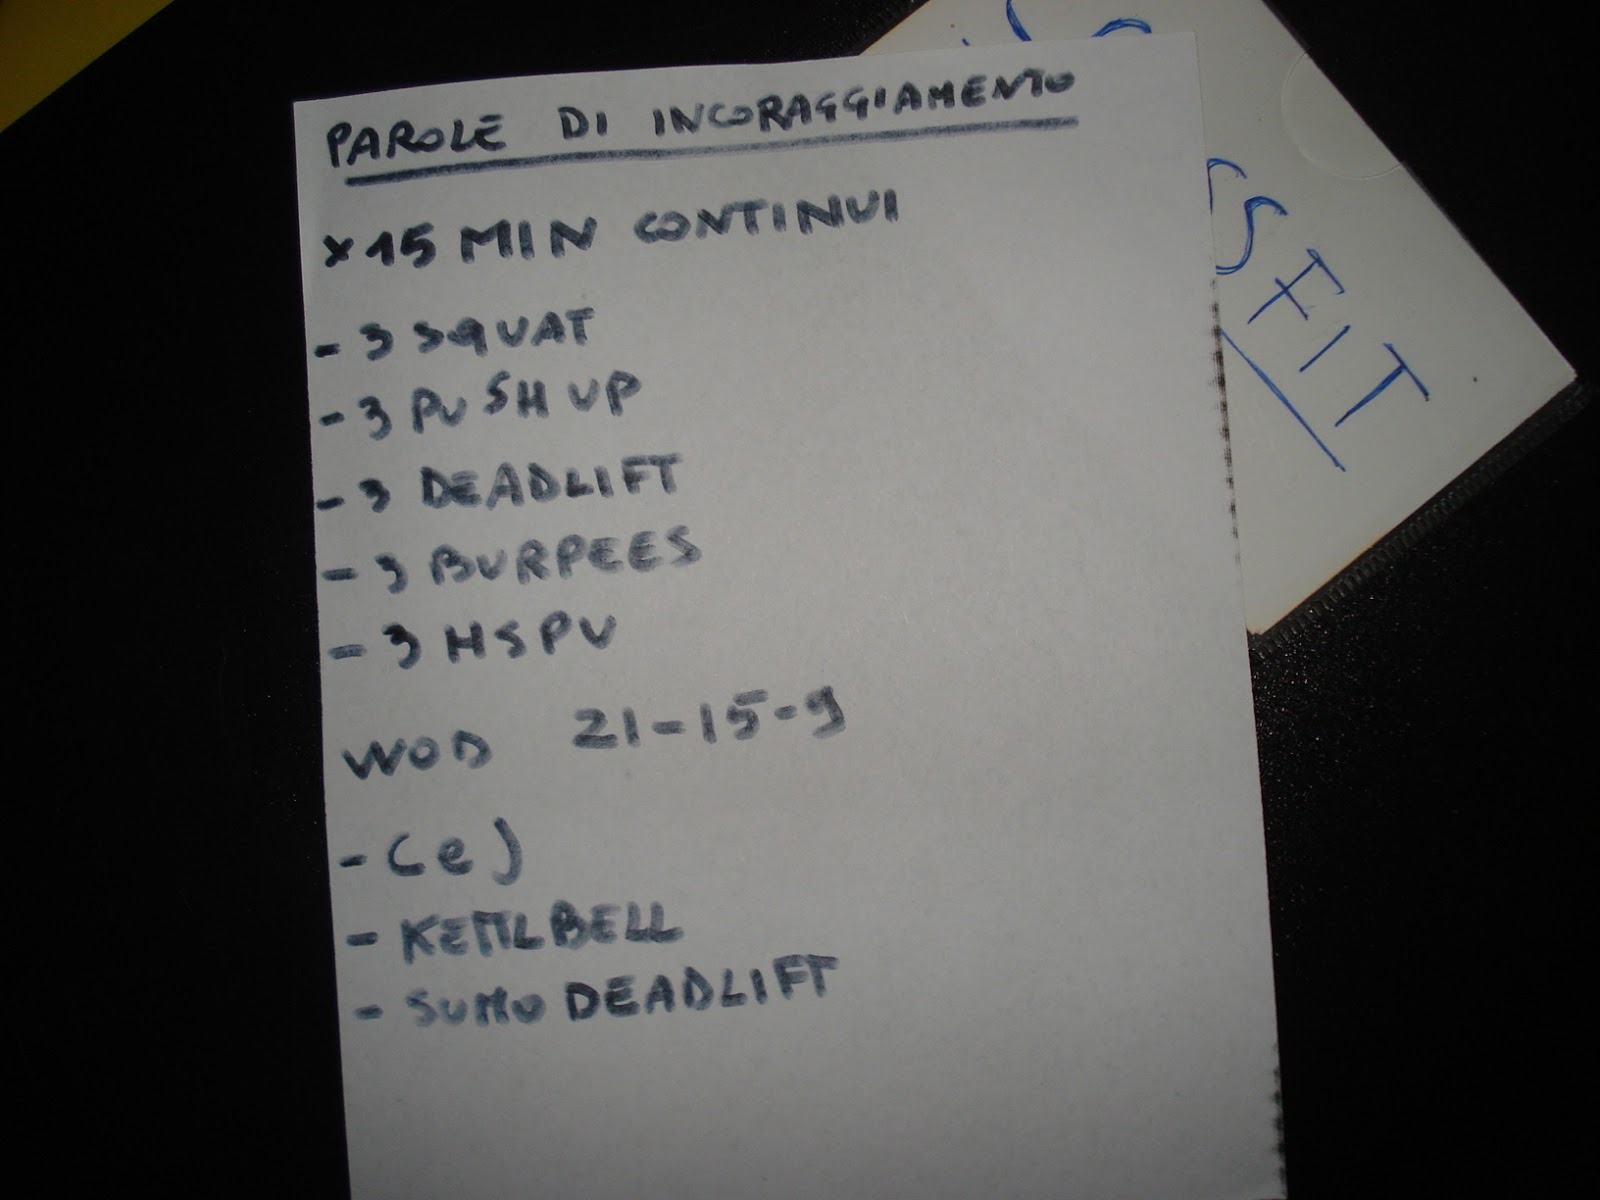 PAROLE DI INCORAGGIAMENTO
x 15 MIN CONTINUI
- 3 SQUAT
- 3 PUSH UP
- 3 DEADLIFT
- 3 BURPEES
- 3 HSPU
WOD 21-15-9
- (e)
- KETTLBELL
- SUMO DEADLIFT
SSFIT